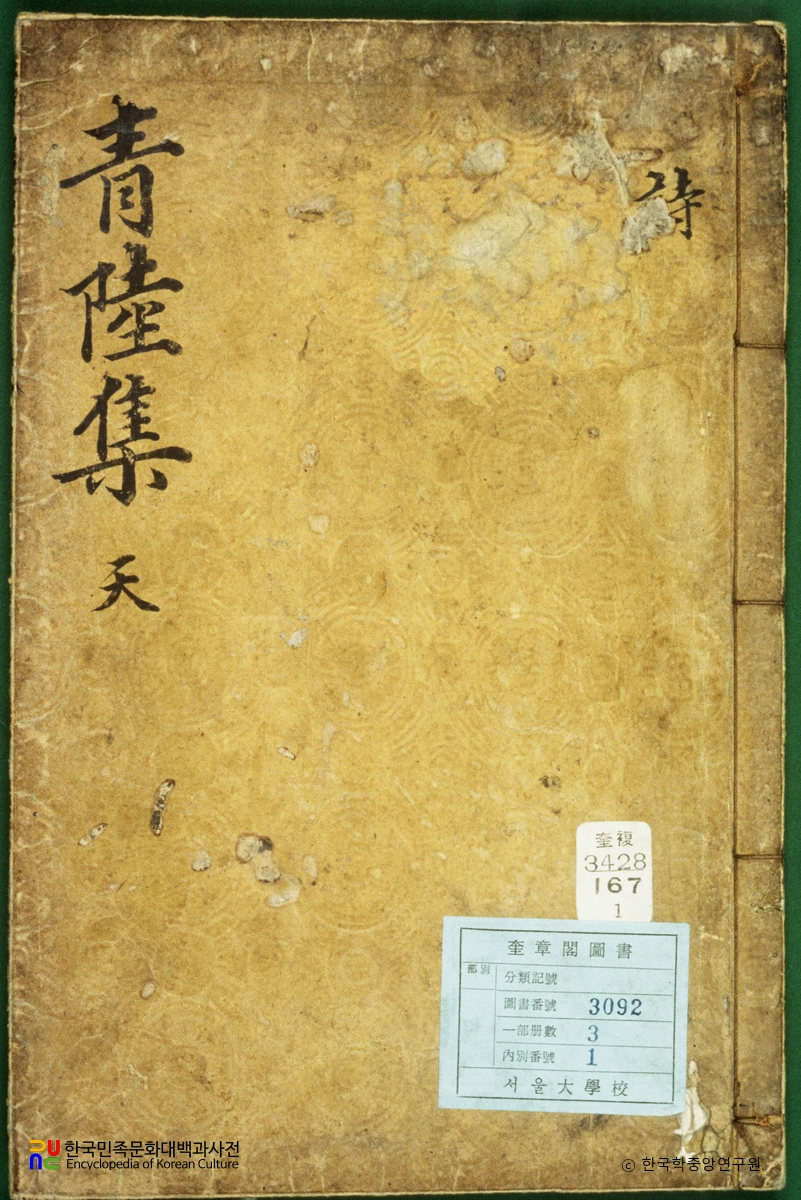 青陸集 天
詩
奎複
3428
167
1
奎章閣圖書
部別
分類記號
圖書番號 3092
一部册數 3
內別番號 1
서울大學校
한국민족문화대백과사전
Encyclopedia of Korean Culture
© 한국학중앙연구원